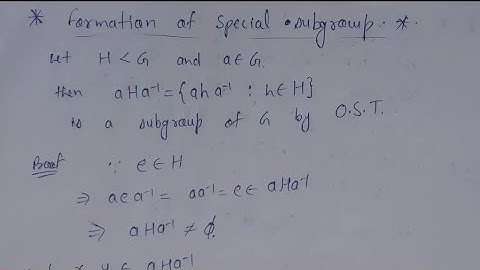 * formation of special subgroup. *
Let H < G and a ∈ G.
then aHa⁻¹ = {aha⁻¹ : h ∈ H}
is a subgroup of G by O.S.T.
Proof ∵ e ∈ H
⇒ aea⁻¹ = aa⁻¹ = e ∈ aHa⁻¹
⇒ aHa⁻¹ ≠ ϕ.
x, y ∈ aHa⁻¹